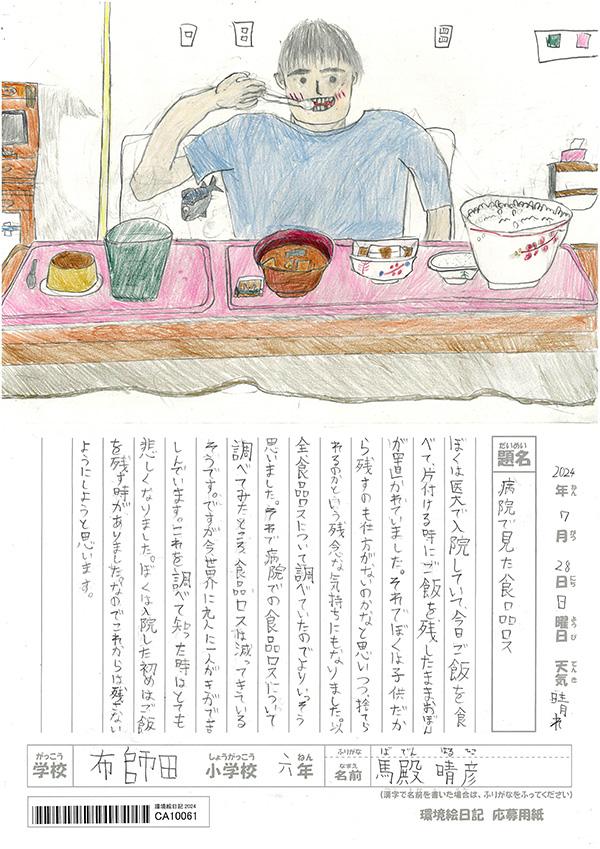 2024年ねん7月がつ28日にち日曜日ようび天気てんき晴れ
だいめい
題名
病院で見た食品ロス
ぼくは医大で入院していて、今日ご飯を食
べて、片付ける時にご飯を残したままおぼん
が置かれていました。それでぼくは子供だか
ら残すのも仕方がないのかなと思いつつ、捨てら
れるのかという残念な気持ちにもなりました。以
全食品ロスについて調べていたのでよりいっそう
思いました。それで病院での食品ロスについて
調べてみたところ、食品ロスは減ってきている
そうです。ですが今世界に九人に一人がきがで苦
しんでいます。これを調べて知った時はとても
悲しくなりました。ぼくは入院した初めはご飯
を残す時がありました。なのでこれからは残さない
ようにしようと思います。
がっこう
学校
布師田
しょうがっこう
小学校
六
ねん
年
ふりがな
ばでん はるひこ
なまえ
名前
馬殿 晴彦
(漢字で名前を書いた場合は、ふりがなをふってください)
環境絵日記 2024
CA10061
環境絵日記 応募用紙